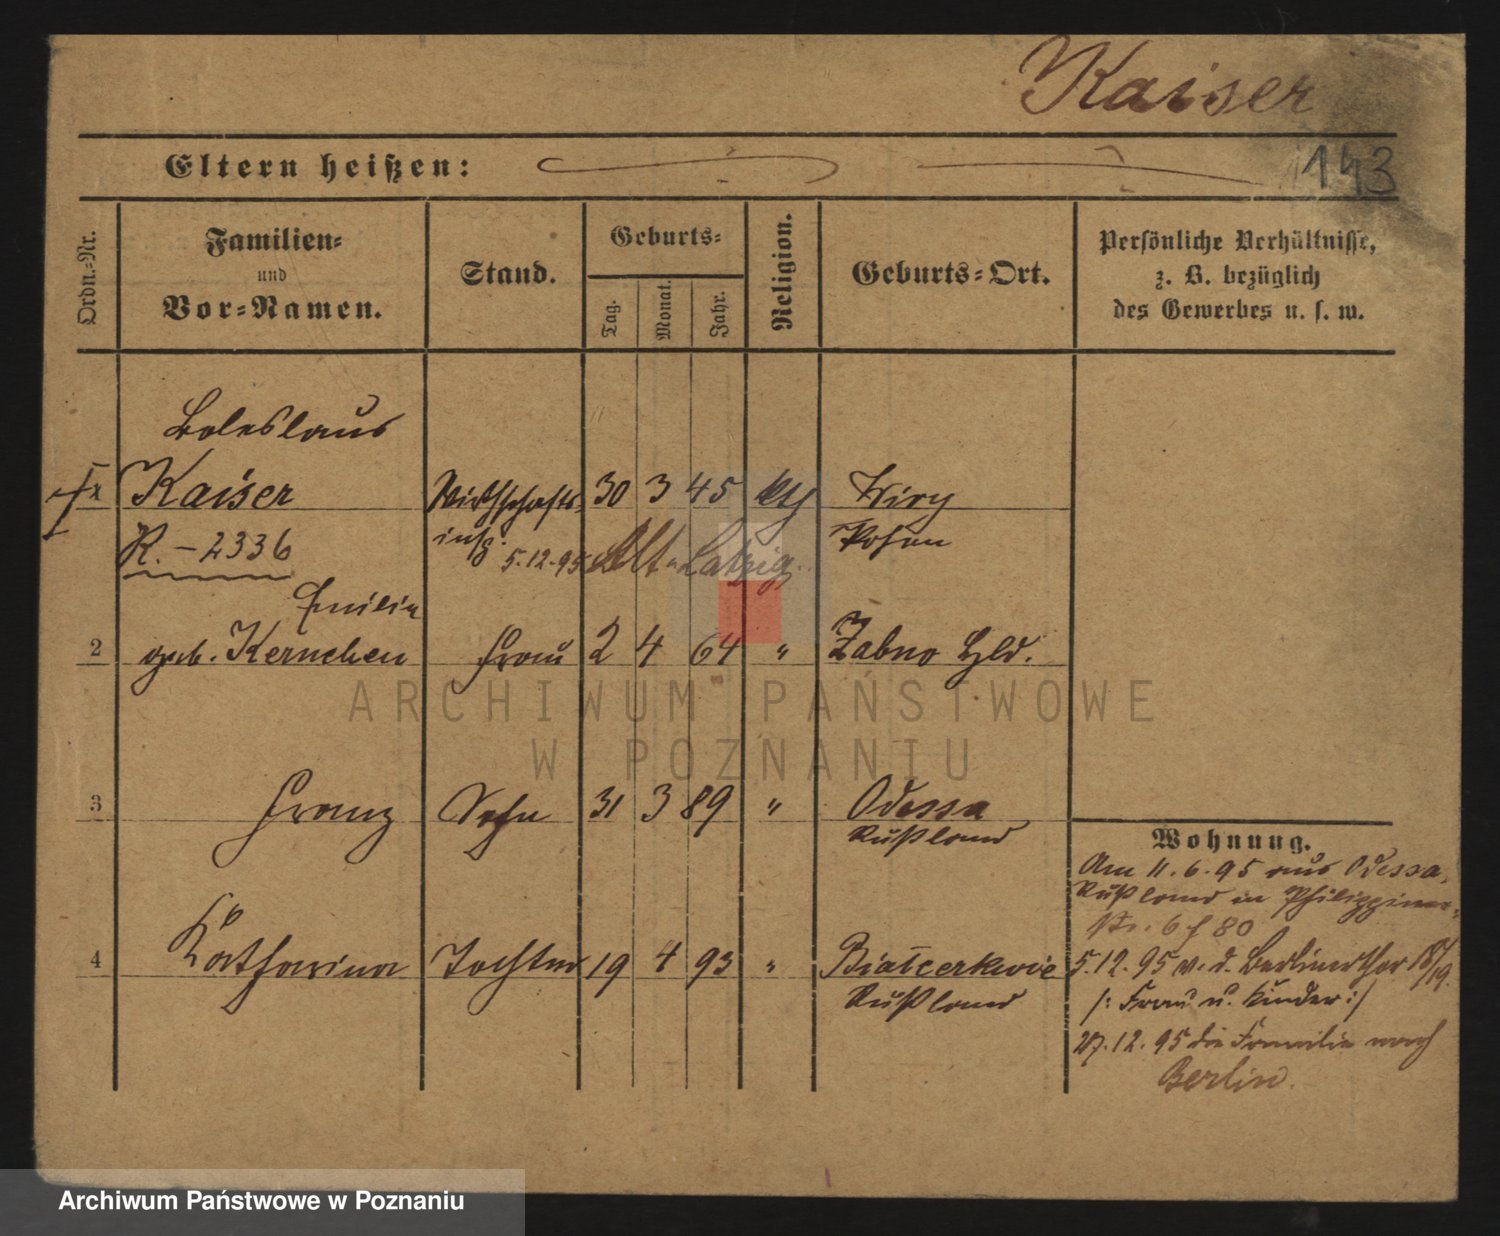 Kaiser
143
Eltern heißen:
Ordn.-Nr.
Familien-
und
Vor-Namen.
Stand.
Geburts-
Tag.
Monat.
Jahr.
Religion.
Geburts-Ort.
Persönliche Verhältnisse,
z. B. bezüglich
des Gewerbes u. s. w.
Boleslaus
Kaiser Wirthschafts- 30 3 45 kth Wiry
insp. Posen
K. - 2336 5.12.95 Alt-Latzig.
Emilie
2 geb. Kernchen Frau 2 4 64 " Zabno Hld.
3 Franz Sohn 31 3 89 " Odessa
Rußland
4 Katharina Tochter 19 4 93 " Bialcerkwie
Rußland
Wohnung.
Am 11.6.95 aus Odessa,
Rußland in Philippinen-
Str. 6 f 80
5.12.95 v. d. Berlinerthor 18/19.
/: Frau u. Kinder :/
27.12.95 die Familie nach
Berlin.
ARCHIWUM PAŃSTWOWE
W POZNANIU
Archiwum Państwowe w Poznaniu